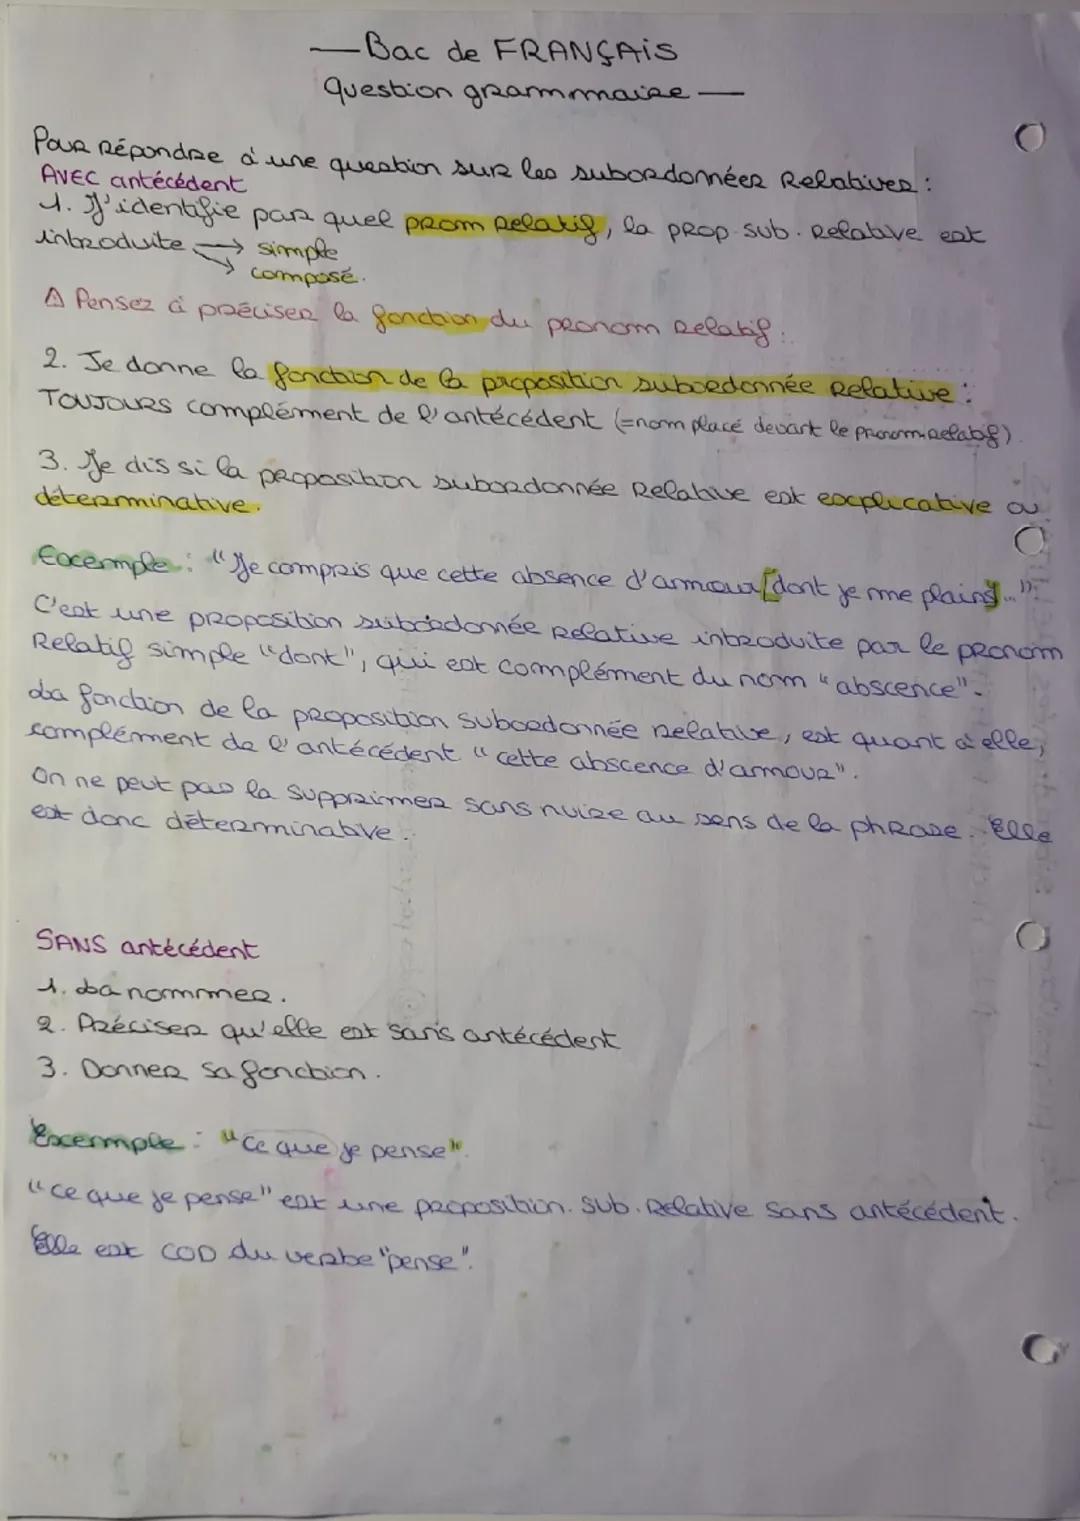 — Bac de FRANÇAIS
Question grammaire —
Pour répondre à une question sur les subordonnées Relatives :
AVEC antécédent
1. J'identifie par quel pronom Relatif, la prop. sub. Relative est
introduite → simple
→ composé.
⚠ Pensez à préciser la fonction du pronom Relatif.
2. Je donne la fonction de la proposition subordonnée Relative :
TOUJOURS complément de l'antécédent (=nom placé devant le pronom relatif)
3. Je dis si la proposition subordonnée Relative est explicative ou
déterminative.
Exemple : "Je compris que cette absence d'amour [dont je me plains]..."
C'est une proposition subordonnée relative introduite par le pronom
Relatif simple "dont", qui est complément du nom "abscence".
La fonction de la proposition subordonnée relative, est quant à elle,
complément de l'antécédent "cette abscence d'amour".
On ne peut pas la supprimer sans nuire au sens de la phrase. Elle
est donc déterminative.
SANS antécédent
1. La nommer.
2. Préciser qu'elle est sans antécédent
3. Donner sa fonction.
Exemple : "Ce que je pense".
"ce que je pense" est une proposition. sub. Relative sans antécédent.
Elle est COD du verbe "pense".